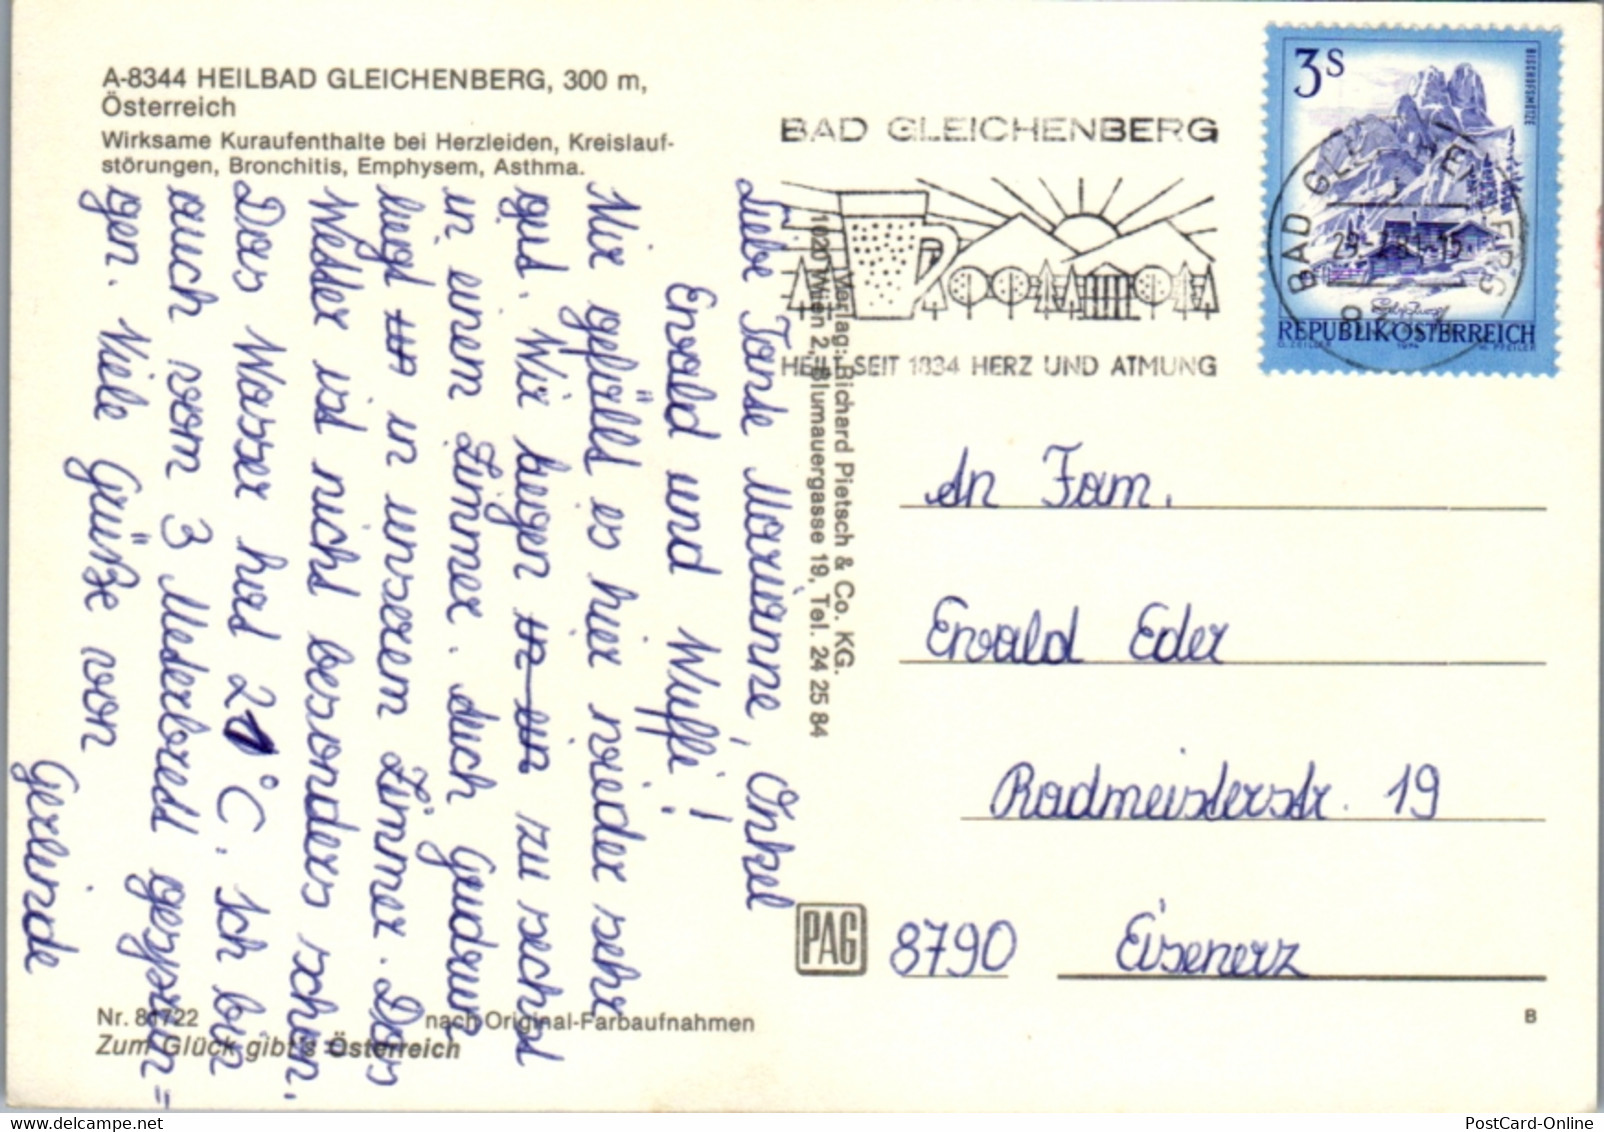 A-8344 HEILBAD GLEICHENBERG, 300 m,
Österreich
Wirksame Kuraufenthalte bei Herzleiden, Kreislauf-
störungen, Bronchitis, Emphysem, Asthma.
Liebe Tante Marianne, Onkel
Ewald und Wuffi!
Mir gefällt es hier wieder sehr
gut. Wir liegen in un zu sechst
in einem Zimmer. Auch Gudrun
liegt in unserem Zimmer. Das
Wetter ist nicht besonders schön.
Das Wasser hat 21°C. Ich bin
auch vom 3 Meterbrett gesprun=
gen. Viele Grüße von
Gerlinde
Nr. 81722
nach Original-Farbaufnahmen
Zum Glück gibt's Österreich
Verlag: Richard Pietsch & Co. KG.
1020 Wien 2, Blumauergasse 19, Tel. 24 25 84
PAG
BAD GLEICHENBERG
HEILT SEIT 1834 HERZ UND ATMUNG
3S
BISCHOFSMÜTZE
BAD GLEICHENBERG
REPUBLIK ÖSTERREICH
O. ZEILLER 1974 G. PFEILER
An Fam.
Ewald Eder
Radmeisterstr. 19
8790 Eisenerz
B
PostCard-Online